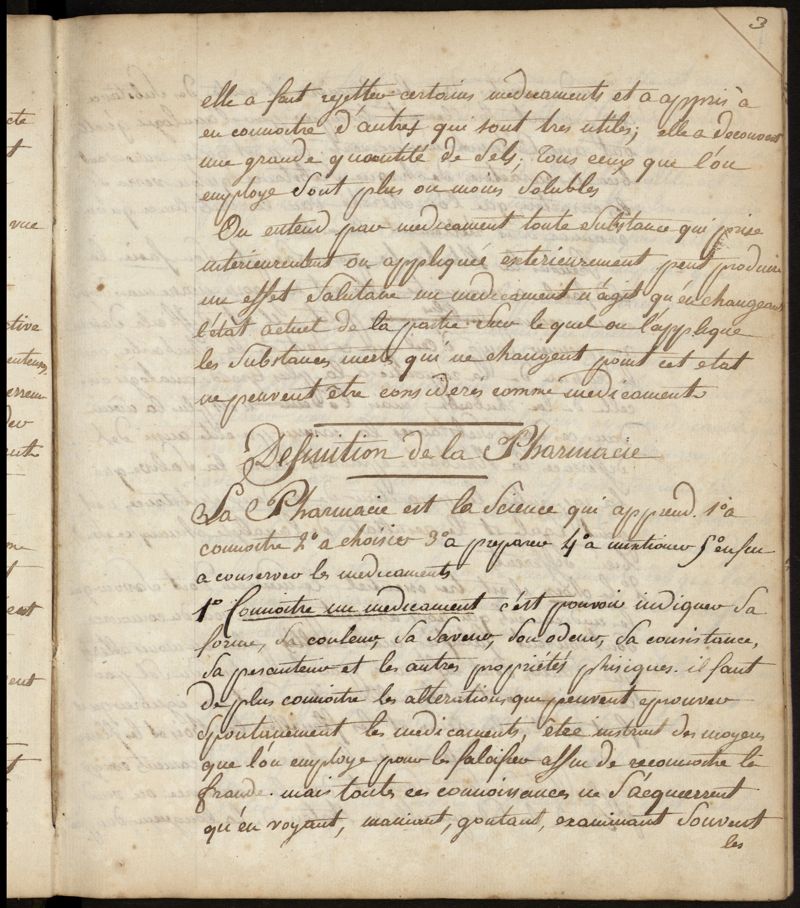 3
elle a fait rejetter certains medicaments et a appris à
en connoitre d'autres qui sont tres utiles; elle a decouvert
une grande quantité de Sels; Tous ceux que l'on
employe sont plus ou moins solubles
On entend par medicament toute substance qui prise
interieurement ou appliquée exterieurement peut produire
un effet salutaire un medicament n'agit qu'en changeant
l'état actuel de la partie sur lequel on l'applique
les substances inertes qui ne changent point cet etat
ne peuvent être considerés comme medicaments
Definition de la Pharmacie
La Pharmacie est la science qui apprend. 1o a
connoitre 2o a choisir 3o a preparer 4o a mixtioner 5o enfin
a conserver les medicaments
1o Connoitre un medicament c'est pouvoir indiquer sa
forme, sa couleur, sa saveur, son odeur, sa consistance,
sa pesanteur et les autres propriétés phisiques. il faut
de plus connoitre les alterations que peuvent eprouver
spontanement les medicaments, être instruit des moyens
que l'on employe pour les falsifier affin de reconnoitre la
fraude. mais toutes ces connoissances ne s'acquierrent
qu'en voyant, maniant, goutant, examinant souvent
les
cte
vue
ctive